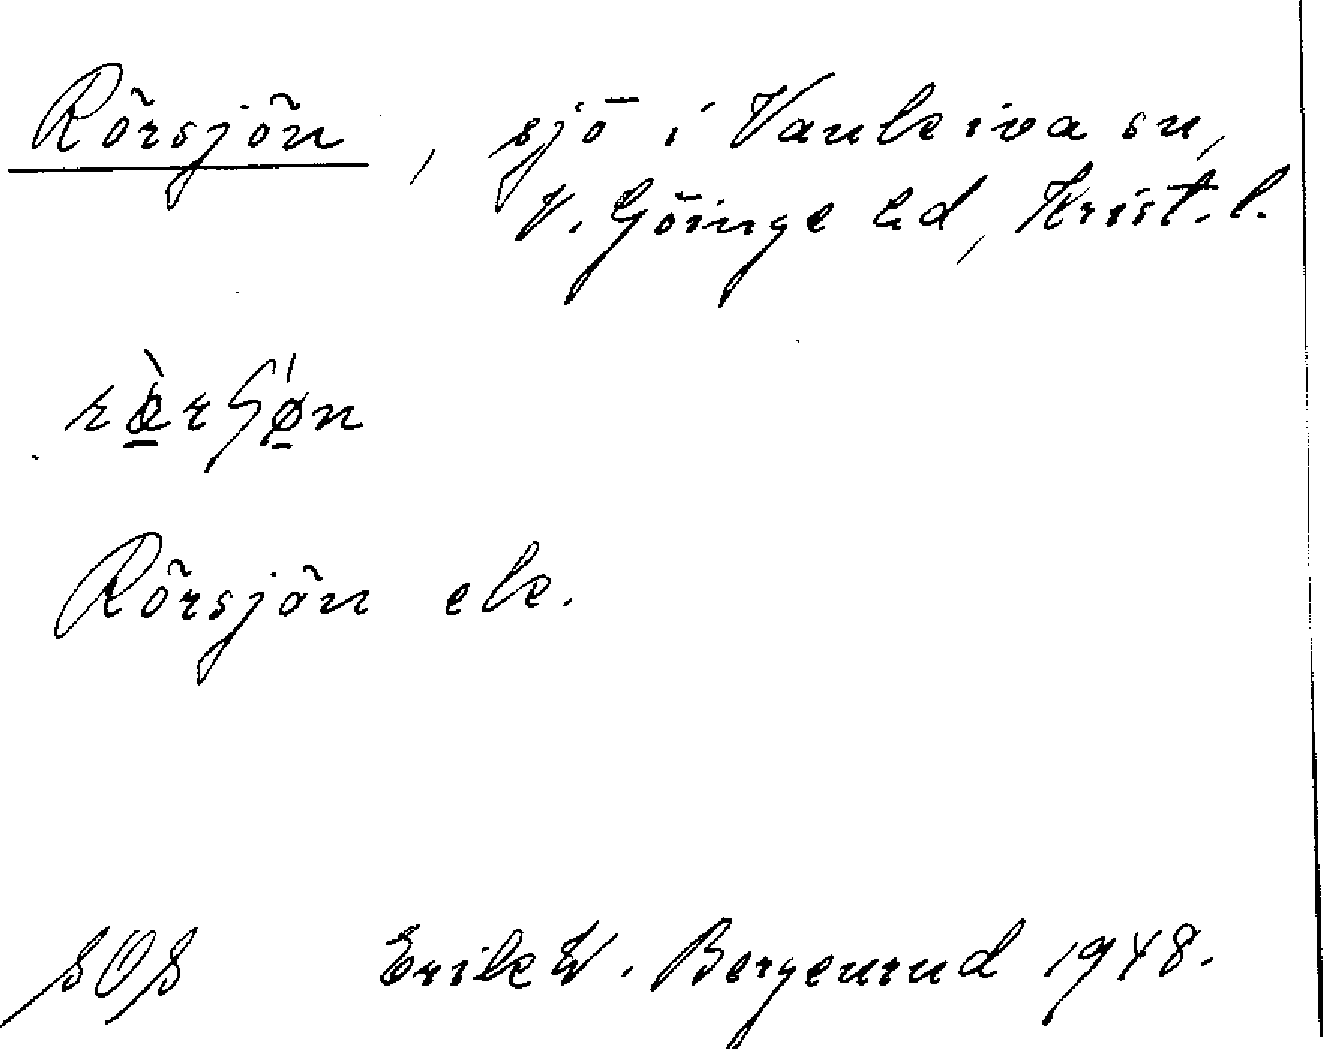 Rörsjön, sjö i Vankiva sn,
V. Göinge hd, Krist. l.
Rörsjön ek.
SOS Erik W. Bergenrud 1948.